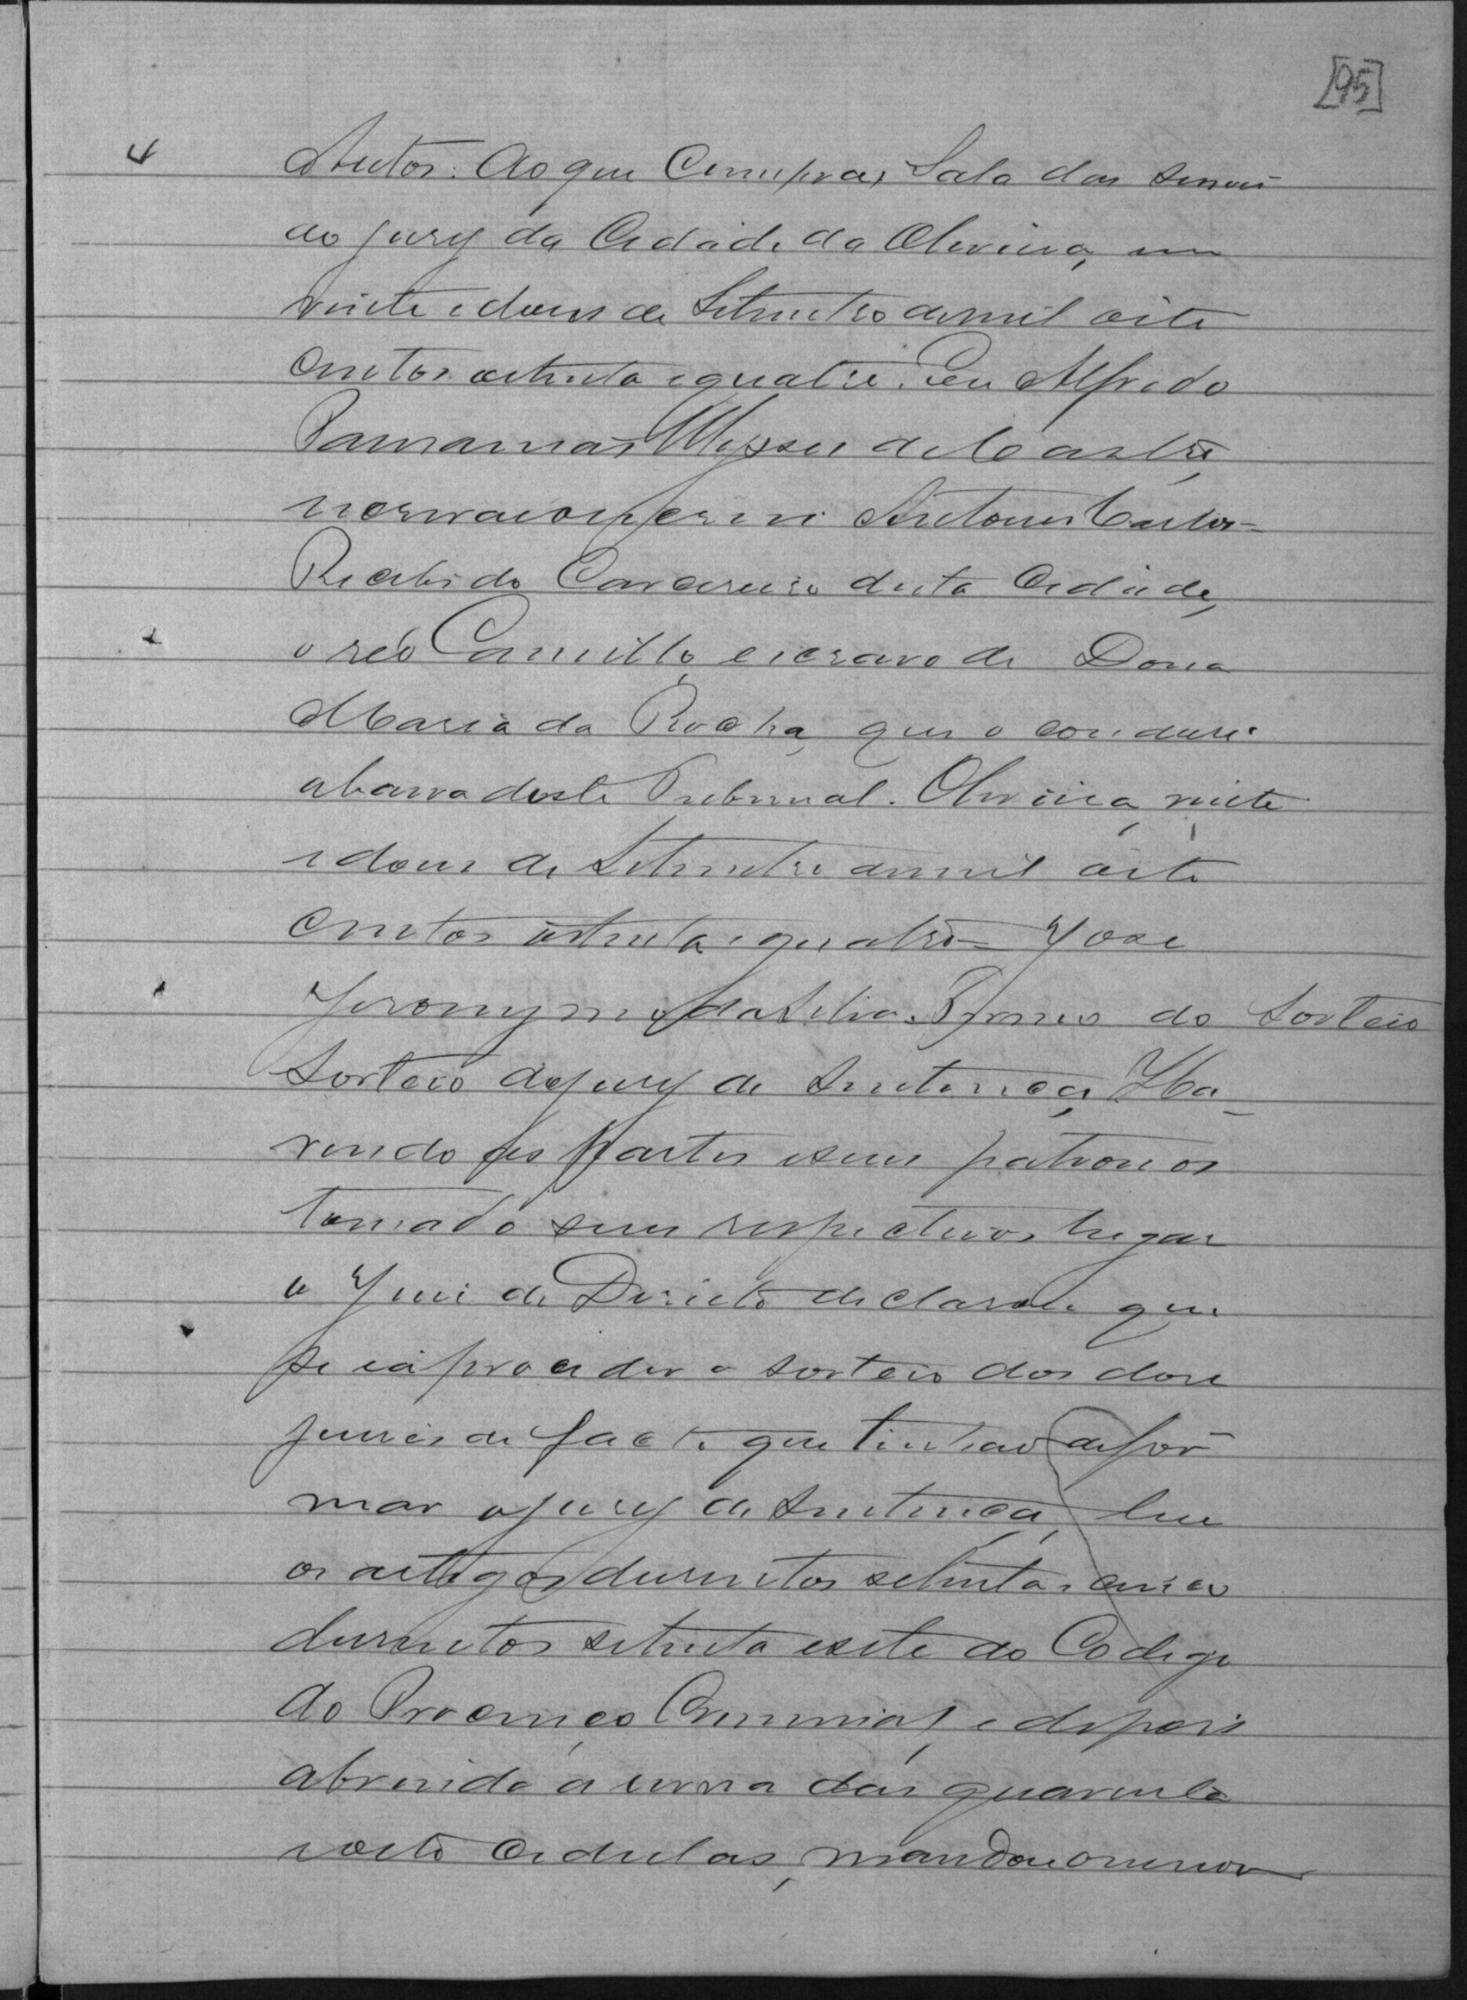 [95]
Autos: Ao que Cumpra, Sala das sessões
do jury da Cidade da Oliveira, em
vinte e dous de Setembro de mil oito
centos oitenta e quatro. Eu Alfredo
Paranaos Ulysses de Castro,
Antonio Carlos =
Recebi do Carcereiro desta Cidade,
o réo Camillo, escravo de Dona
Maria da Rocha, que o conduzi
a barra deste Tribunal. Oliveira, vinte
e dous de Setembro de mil oito
centos oitenta e quatro = Jose
Jeronymo da Silva. Termo do Sorteio
Sorteio do jury de Sentença, Ha-
vendo as partes e seus patronos
tomado seus respectivos lugar
o Juiz de Direito declarou que
se ia proceder o sorteio dos dose
juizes de facto que tinhão de for
mar o jury de Sentença, leu
os artigos dusentos setenta e cinco
dusentos setenta e sete do Codigo
do Processo Criminal, e depois
abrindo a urna das quarenta
e oito cedulas, mandou o menor